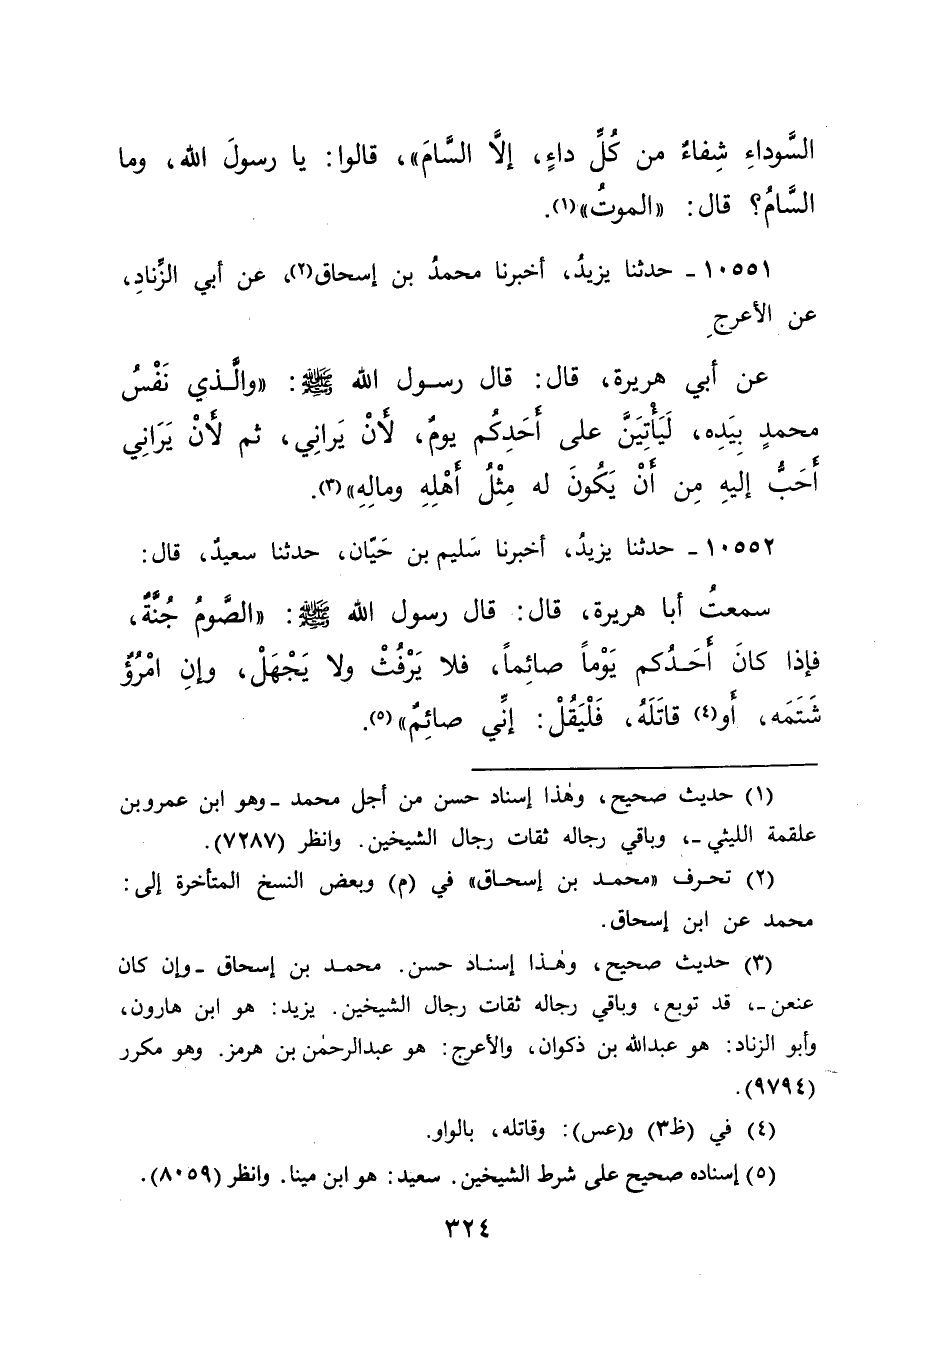 السَّوداءِ شِفاءٌ من كُلِّ داءٍ، إلَّا السَّامَ»، قالوا: يا رسولَ الله، وما
السَّامُ؟ قال: «الموتُ»(١).
١٠٥٥١ ـ حدثنا يزيدُ، أخبرنا محمدُ بن إسحاق(٢)، عن أبي الزِّنادِ،
عن الأعرجِ
عن أبي هريرة، قال: قال رسول الله ﷺ: «والَّذي نَفْسُ
محمدٍ بِيَدِه، لَيَأْتِيَنَّ على أَحَدِكُم يومٌ، لَأَنْ يَراني، ثم لَأَنْ يَرَاني
أَحَبُّ إليهِ مِن أَنْ يَكُونَ له مِثْلُ أَهْلِهِ ومالِهِ»(٣).
١٠٥٥٢ ـ حدثنا يزيدُ، أخبرنا سَليم بن حَيّان، حدثنا سعيدٌ، قال:
سمعتُ أبا هريرة، قال: قال رسول الله ﷺ: «الصَّومُ جُنَّةٌ،
فإذا كانَ أَحَدُكم يَوْماً صائِماً، فلا يَرْفُثْ ولا يَجْهَلْ، وإنِ امْرُؤٌ
شَتَمَه، أَو(٤) قاتَلَهُ، فَلْيَقُلْ: إنِّي صائِمٌ»(٥).
(١) حديث صحيح، وهٰذا إسناد حسن من أجل محمد ـوهو ابن عمرو بن
علقمة الليثي ـ، وباقي رجاله ثقات رجال الشيخين. وانظر (٧٢٨٧).
(٢) تحرف «محمد بن إسحاق» في (م) وبعض النسخ المتأخرة إلى:
محمد عن ابن إسحاق.
(٣) حديث صحيح، وهٰذا إسناد حسن. محمد بن إسحاق ـوإن كان
عنعن ـ، قد توبع، وباقي رجاله ثقات رجال الشيخين. يزيد: هو ابن هارون،
وأبو الزناد: هو عبدالله بن ذكوان، والأعرج: هو عبدالرحمٰن بن هرمز. وهو مكرر
(٩٧٩٤).
(٤) في (ظ٣) و(عس): وقاتله، بالواو.
(٥) إسناده صحيح على شرط الشيخين. سعيد: هو ابن مينا. وانظر (٨٠٥٩).
٣٢٤